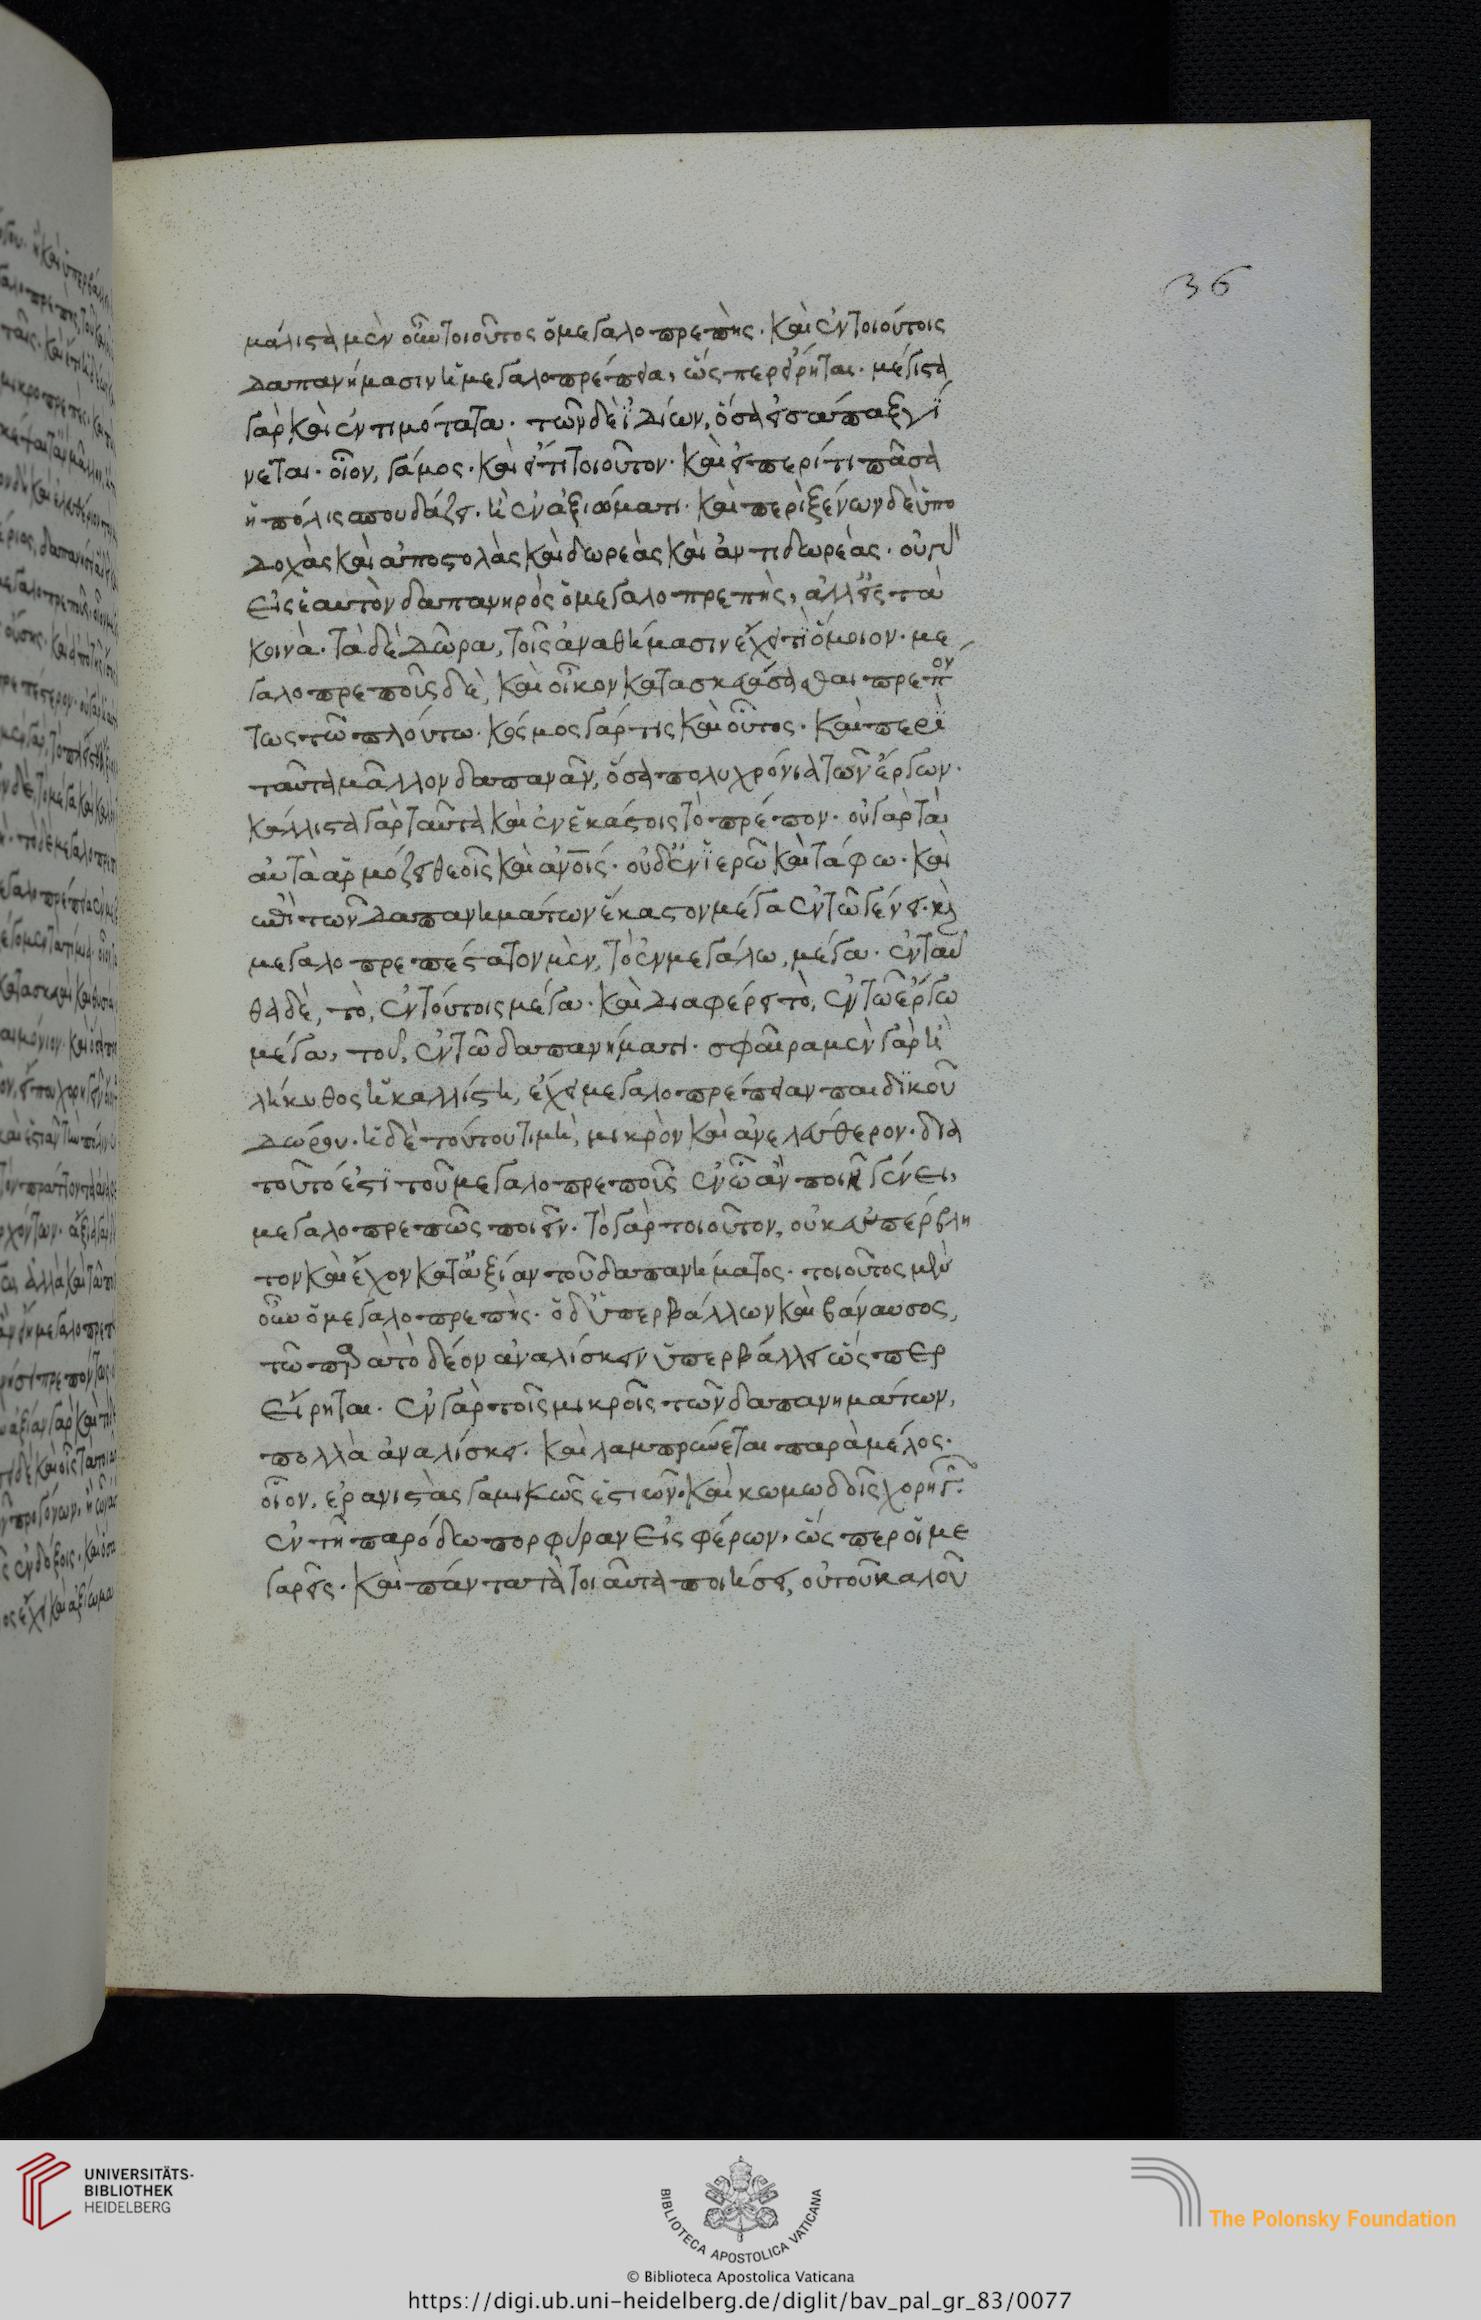 36
μάλιστα μὲν οὖν τοιοῦτος ὁ μεγαλοπρεπὴς. καὶ ἐν τοιούτοις
δαπανήμασιν ἡ μεγαλοπρέπεια, ὥς περ εἴρηται. μέγιστα
γὰρ καὶ ἐντιμότατα. τῶν δὲ ἰδίων, ὅσα εἰσάπαξ γί
νεται. οἷον, γάμος. καὶ εἴ τι τοιοῦτον. καὶ εἰ περί τι πᾶσα
ἡ πόλις σπουδάζει. ἢ ἐν ἀξιώματι. καὶ περὶ ξένων δὲ ὑπο
δοχὰς καὶ ἀποστολὰς καὶ δωρεὰς καὶ ἀντιδωρεάς. οὐ γὰρ
εἰς ἑαυτὸν δαπανηρὸς ὁ μεγαλοπρεπὴς, ἀλλ' εἰς τὰ
κοινὰ. τὰ δὲ δῶρα, τοῖς ἀναθήμασιν ἔχει τι ὅμοιον. με
γαλοπρεποῦς δὲ, καὶ οἶκον κατασκευάσασθαι πρεπόν
τως τῶ πλούτω. κόσμος γάρ τις καὶ οὗτος. καὶ περὶ
ταῦτα μᾶλλον δαπανᾶν, ὅσα πολυχρόνια τῶν ἔργων.
κάλλιστα γὰρ ταῦτα καὶ ἐν ἑκάστοις τὸ πρέπον. οὐ γὰρ ταὐ
αὐτὰ ἁρμόζει θεοῖς καὶ ἀνοις. οὐδ' ἐν ἱερῶ καὶ τάφω. καὶ
ἐπὶ τῶν δαπανημάτων ἕκαστον μέγα ἐν τῶ γένει. καὶ
μεγαλοπρεπέστατον μὲν, τὸ ἐν μεγάλω, μέγα. ἐνταῦ
θα δὲ, τὸ, ἐν τούτοις μέγα. καὶ διαφέρει τὸ, ἐν τῶ ἔργω
μέγα, τοῦ, ἐν τῶ δαπανήματι. σφαῖρα μὲν γὰρ ἢ
λήκυθος ἡ καλλίστη, ἔχει μεγαλοπρέπειαν παιδικοῦ
δώρου. ἡ δὲ τούτου τιμὴ, μικρὸν καὶ ἀνελεύθερον. διὰ
τοῦτό ἐστι τοῦ μεγαλοπρεποῦς ἐν ὧ ἂν ποιῆ γένει,
μεγαλοπρεπῶς ποιεῖν. τὸ γὰρ τοιοῦτον, οὐκ εὐπέρβλη
τον καὶ ἔχον κατ' ἀξίαν τοῦ δαπανήματος. τοιοῦτος μὲν
οὖν ὁ μεγαλοπρεπὴς. ὁ δ' ὑπερβάλλων καὶ βάναυσος,
τῶ παρὰ τὸ δέον ἀναλίσκειν ὑπερβάλλει ὥς περ
εἴρηται. ἐν γὰρ τοῖς μικροῖς τῶν δαπανημάτων,
πολλὰ ἀναλίσκει. καὶ λαμπρύνεται παρὰ μέλος.
οἷον, ἐρανιστὰς γαμικῶς ἑστιῶν. καὶ κωμωδοῖς χορηγῶν
ἐν τῆ παρόδω πορφύραν εἰς φέρων, ὥς περ οἱ με
γαρεῖς. καὶ πάντα τὰ τοιαῦτα ποιήσει, οὐ τοῦ καλοῦ
UNIVERSITÄTS-
BIBLIOTHEK
HEIDELBERG
BIBLIOTECA APOSTOLICA VATICANA
The Polonsky Foundation
© Biblioteca Apostolica Vaticana
https://digi.ub.uni-heidelberg.de/diglit/bav_pal_gr_83/0077